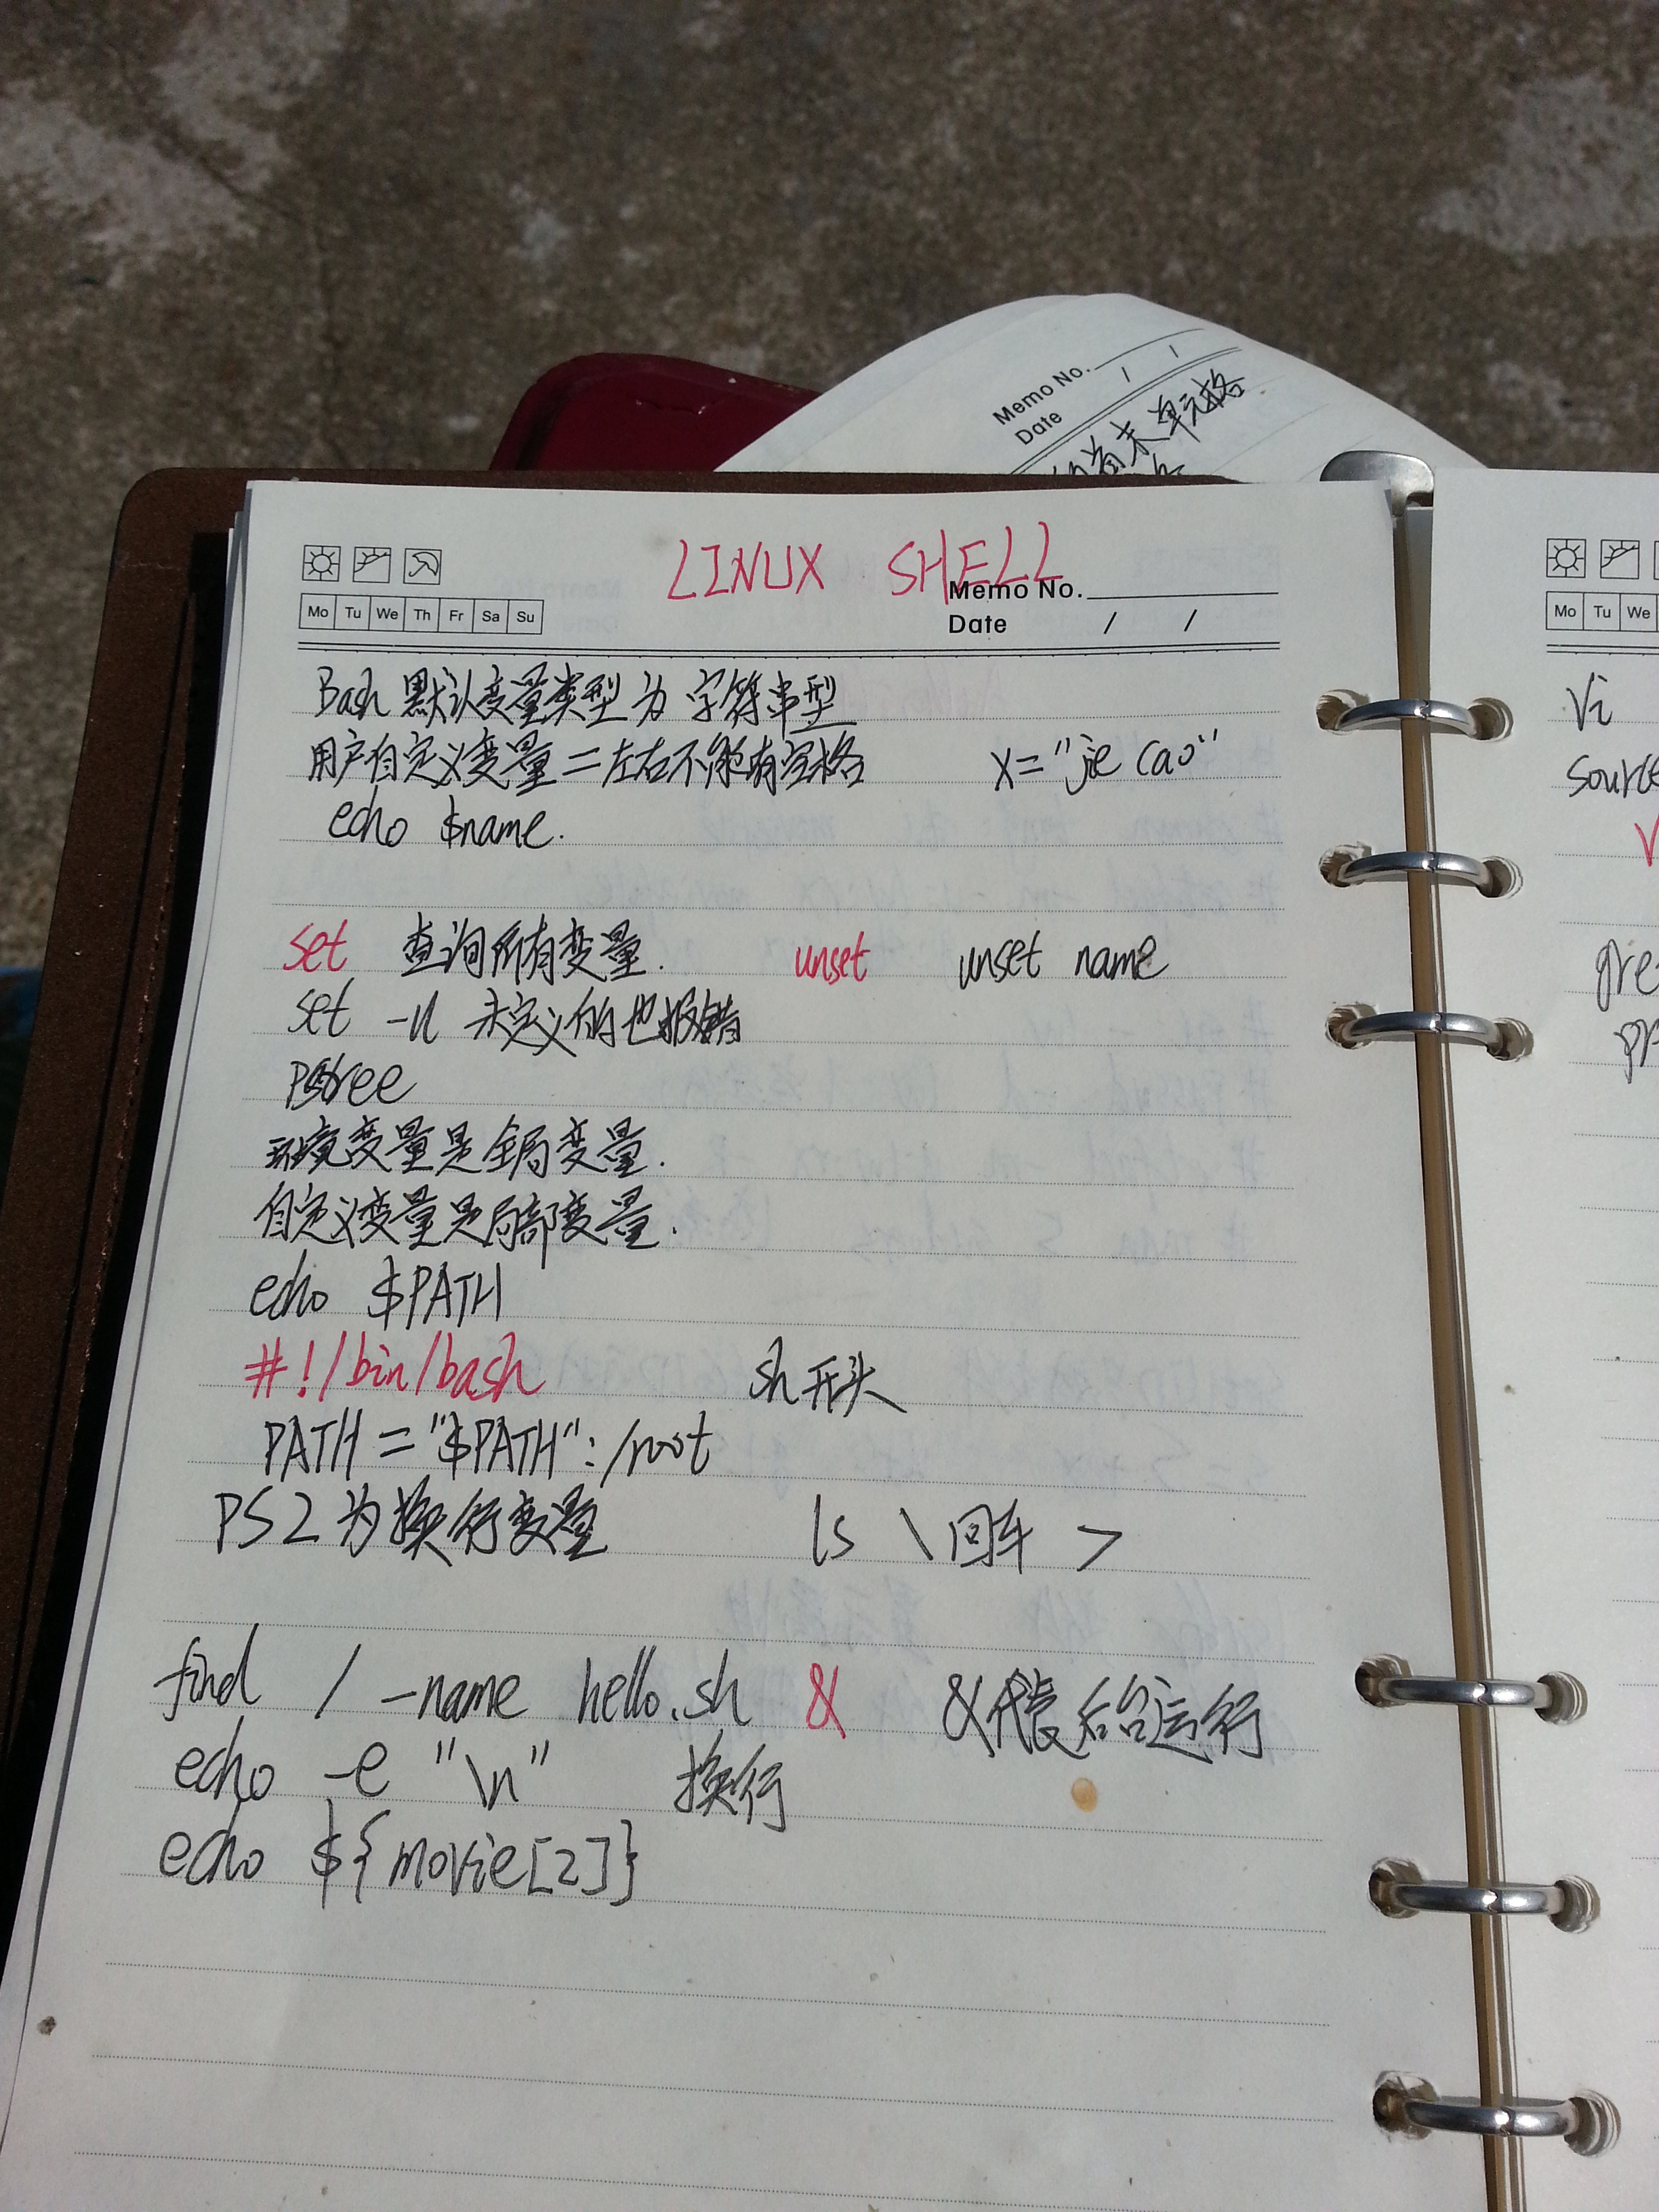 Memo No.
Date / /
末单元格
LINUX SHELL
Memo No.
Mo Tu We Th Fr Sa Su
Date / /
Bash 默认变量类型为 字符串型
用户自定义变量 = 左右不能有空格 x="jie cao"
echo $name.
set 查询所有变量. unset unset name
set -u 未定义的也报错
pstree
环境变量是全局变量.
自定义变量是局部变量.
echo $PATH
#!/bin/bash sh开头
PATH="$PATH":/root
PS2为换行变量 ls \回车 >
find / -name hello.sh & &代表后台运行
echo -e "\n" 换行
echo ${movie[2]}
Mo Tu We
Vi
source